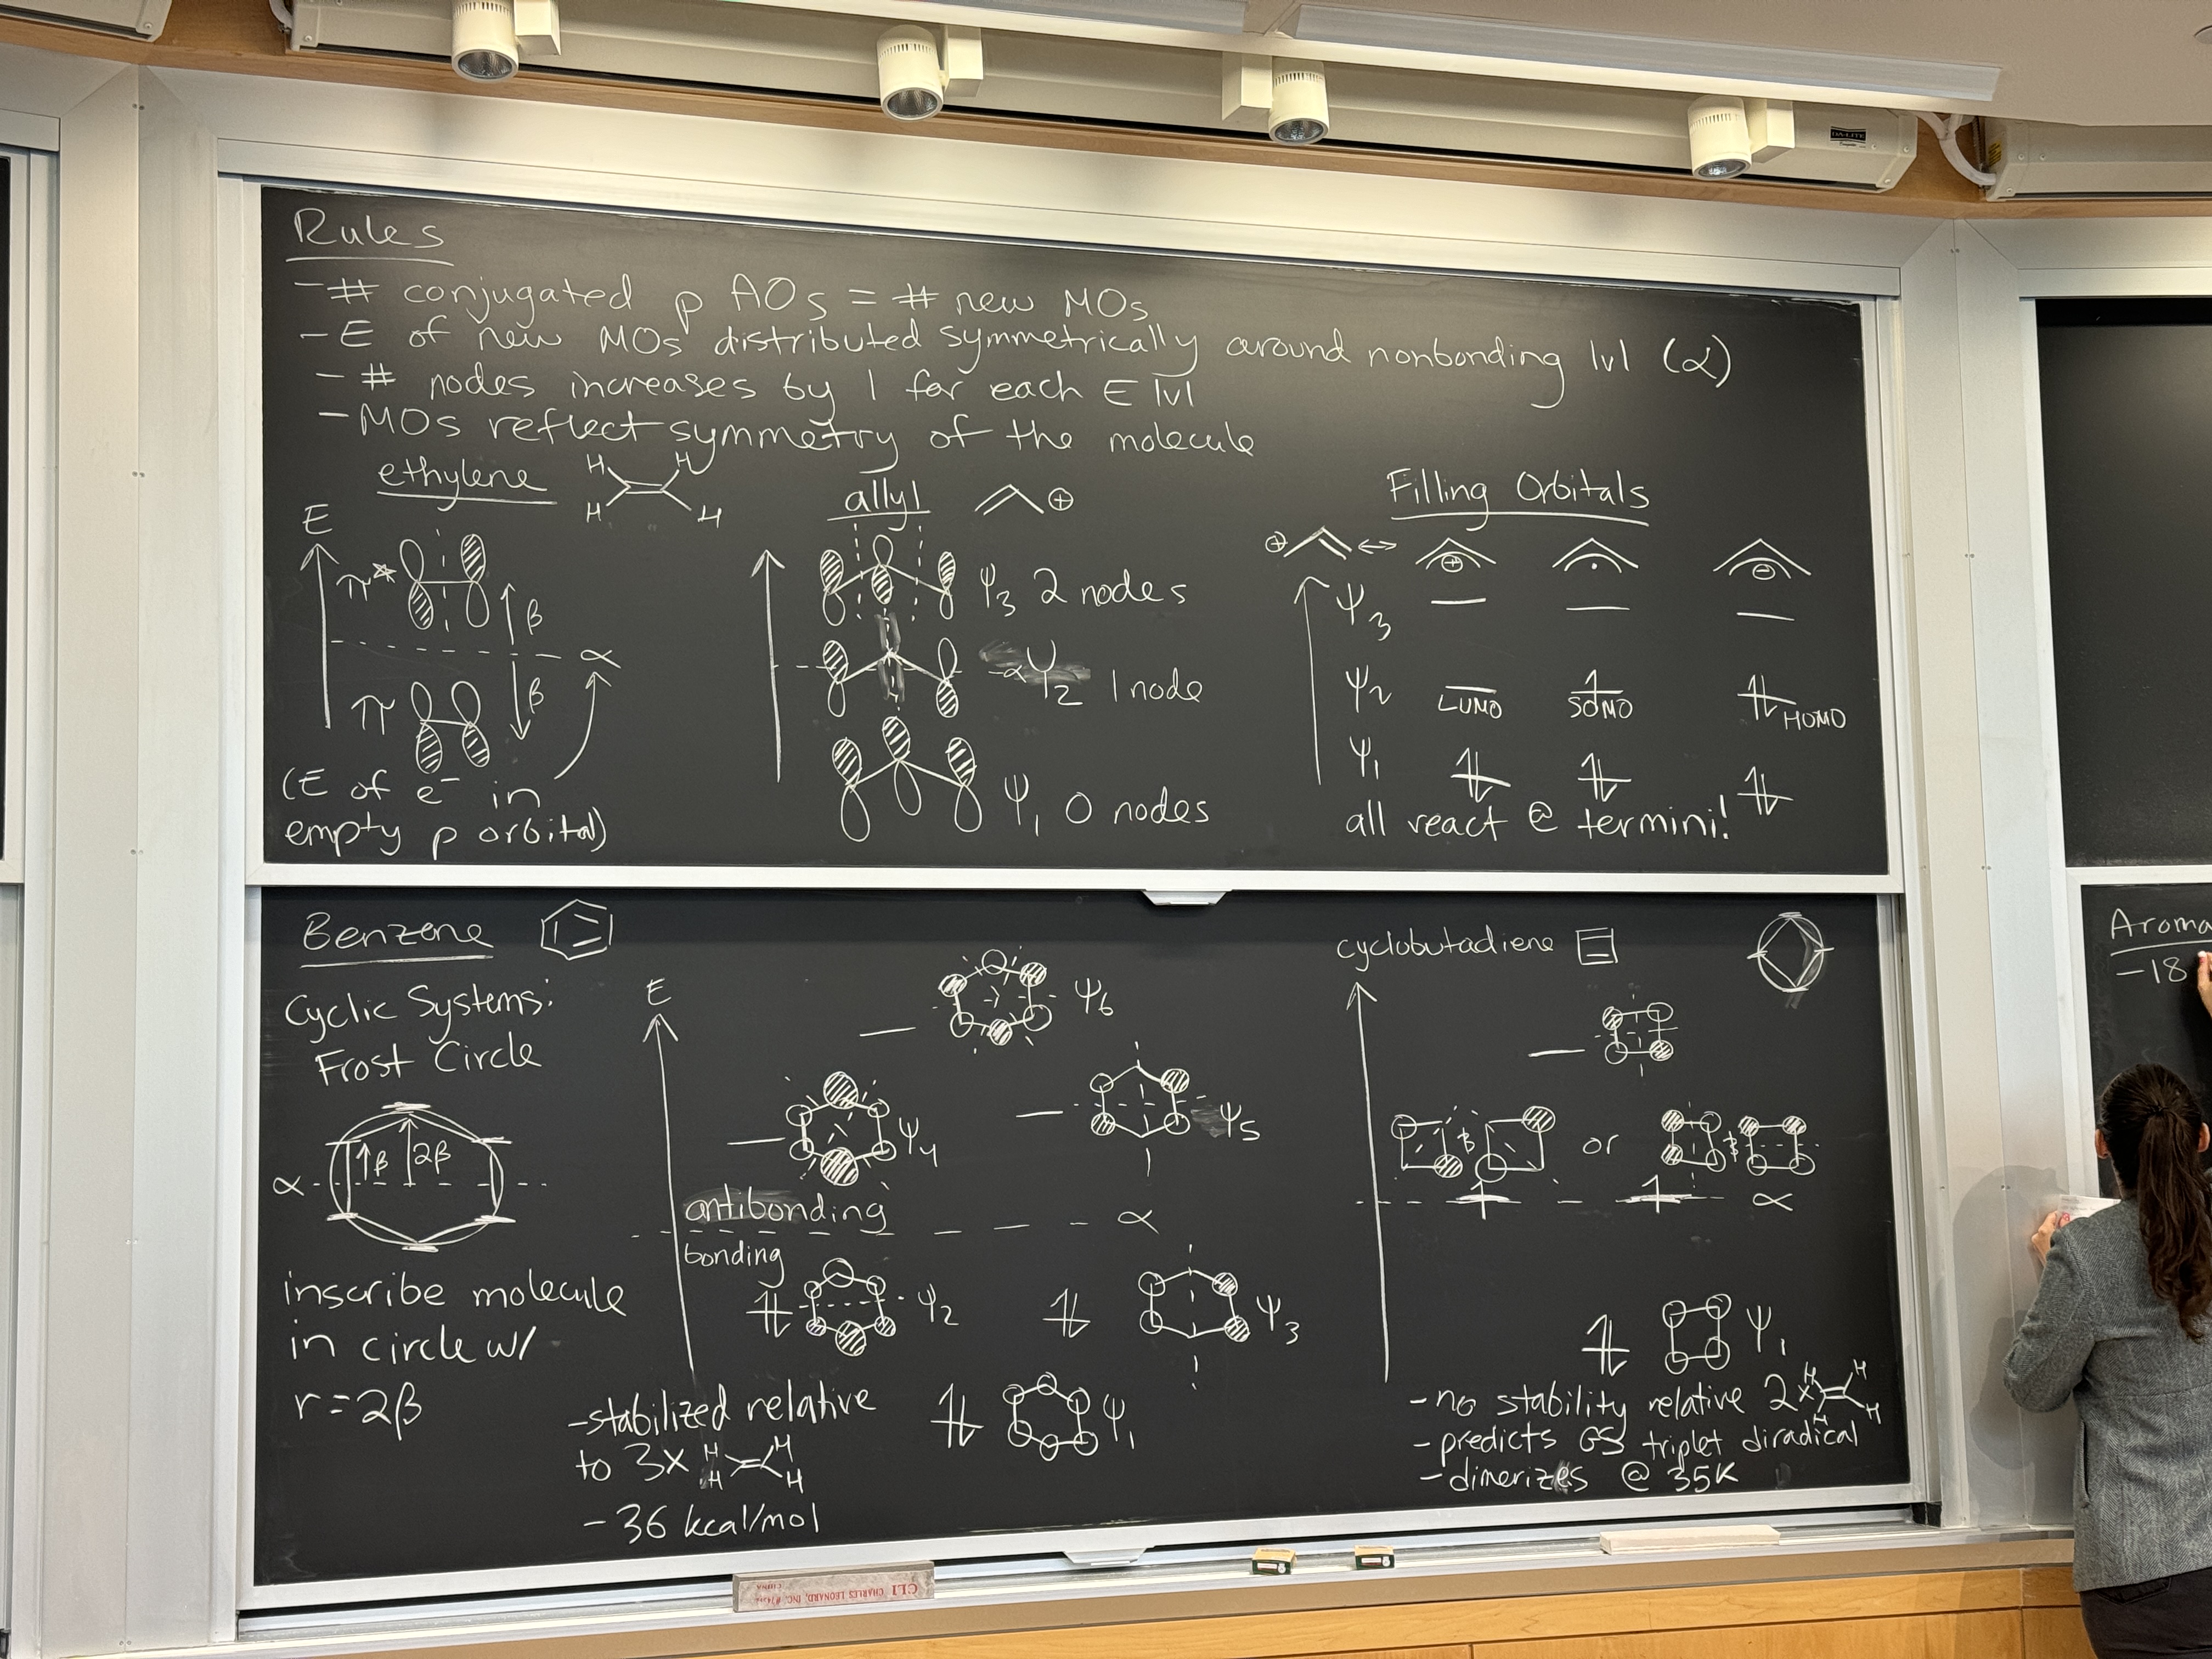 Rules
-# conjugated p AOs = # new MOs
-E of new MOs distributed symmetrically around nonbonding lvl (α)
-# nodes increases by 1 for each E lvl
-MOs reflect symmetry of the molecule
ethylene
H H
H H
E
π*
β
α
β
π
(E of e⁻ in
empty p orbital)
allyl ⊕
Ψ₃ 2 nodes
Ψ₂ 1 node
Ψ₁ 0 nodes
Filling Orbitals
⊕ ↔ ⊕ · ⊖
Ψ₃
Ψ₂ LUMO SOMO HOMO
Ψ₁
all react @ termini!
Benzene
Cyclic Systems:
Frost Circle
α β 2β
inscribe molecule
in circle w/
r=2β
E
Ψ₆
Ψ₄ Ψ₅
antibonding
α
bonding
Ψ₂ Ψ₃
Ψ₁
-stabilized relative
to 3x H H
H H
-36 kcal/mol
cyclobutadiene
or
α
Ψ₁
-no stability relative 2x H H
H H
-predicts GS triplet diradical
-dimerizes @ 35K
Aroma
-18
DA-LITE
CLI CHARLES LEONARD, INC.
CHINA